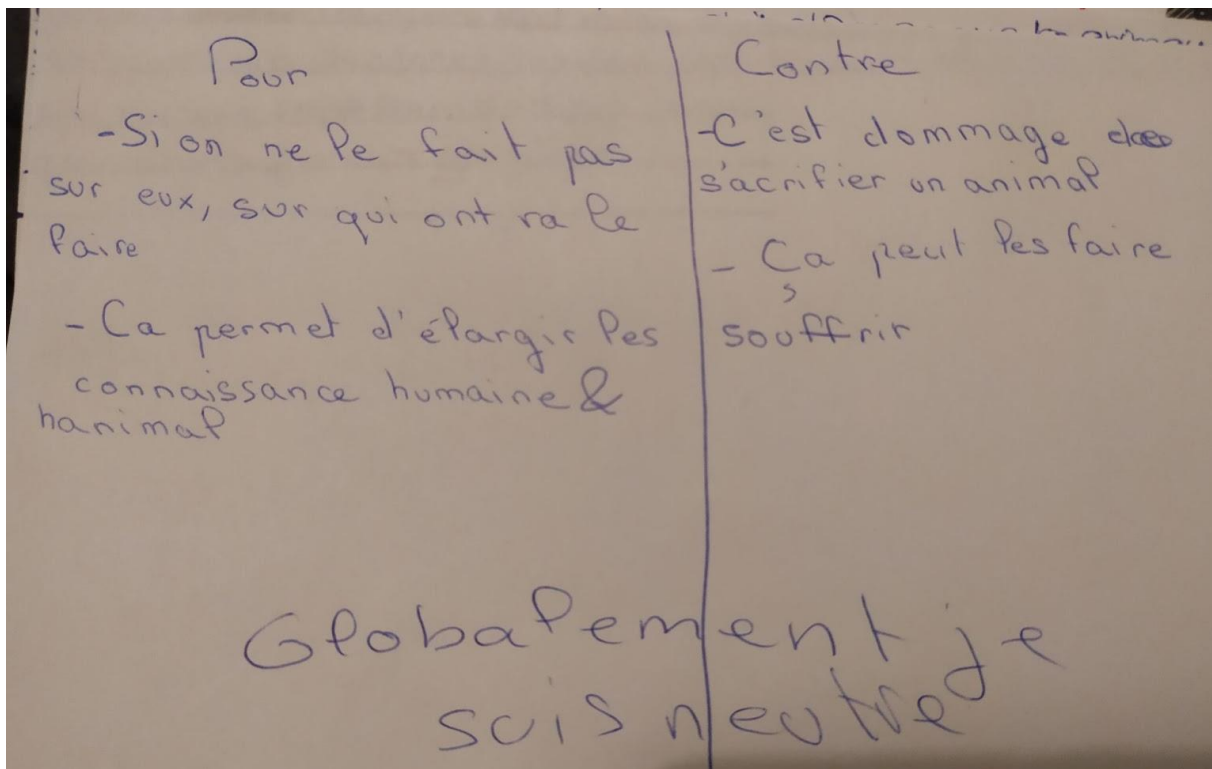 Pour
-Si on ne le fait pas
sur eux, sur qui ont va le
faire
- Ca permet d'élargir les
connaissance humaine &
hanimal
Contre
-C'est dommage de
s'acrifier un animal
- Ça peut les faire
souffrir
Globalement je
suis neutre